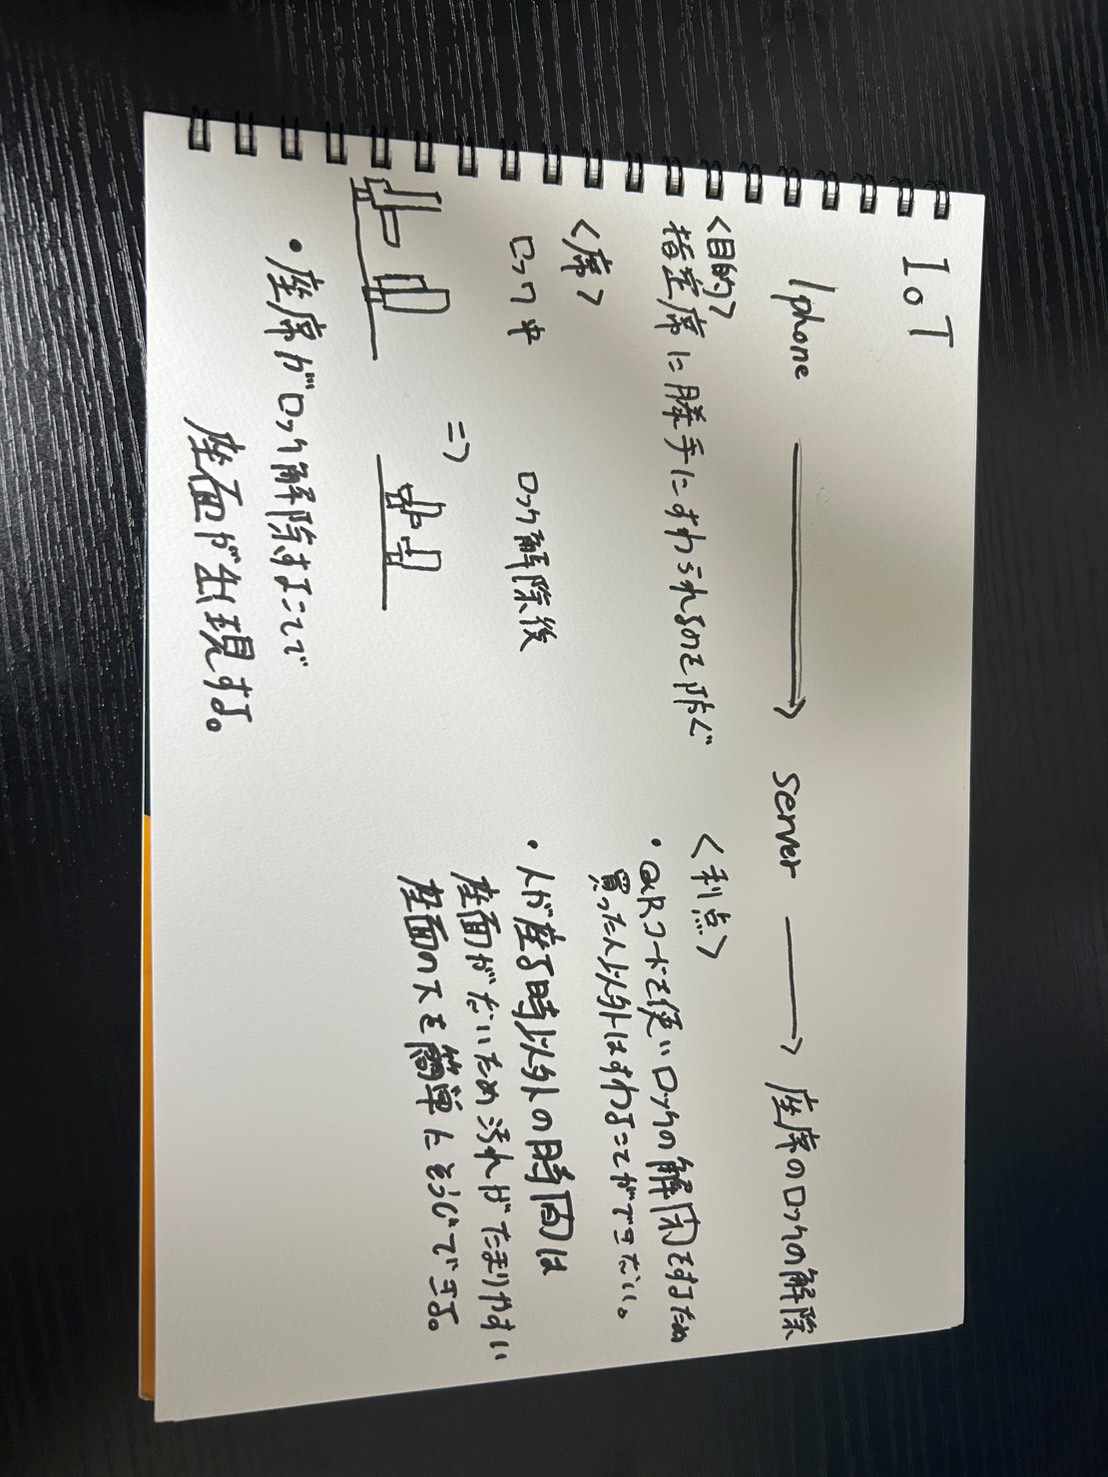 IoT
Iphone → server → 座席のロックの解除
<目的>
指定席に勝手にすわられるのを防ぐ
<席>
ロック中 ロック解除後
⇒
・座席がロック解除することで
座面が出現する。
<利点>
・QRコードを使いロックの解閉をするため
買った人以外はすわることができない。
・人が座る時以外の時間は
座面がないため汚れがたまりやすい
座面の下を簡単にそうじできる。